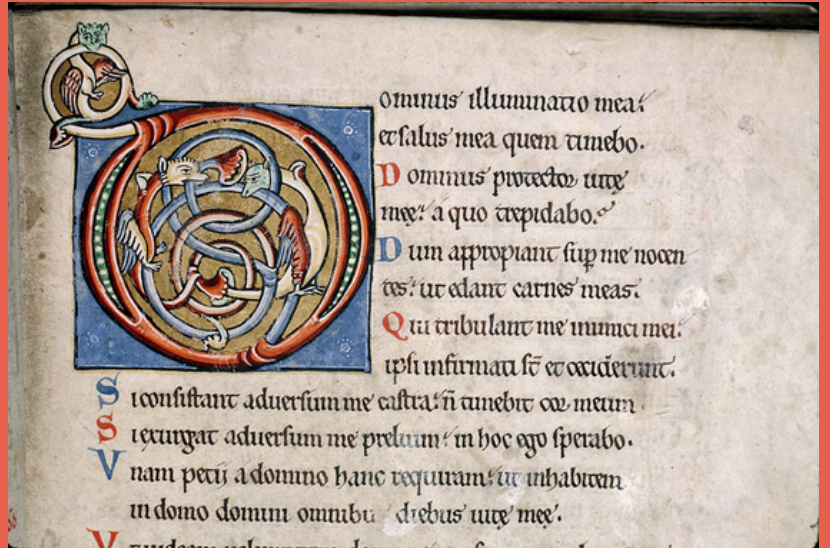 Dominus illuminatio mea:
et salus mea quem timebo.
Dominus protector uitę
meę: a quo trepidabo.
Dum appropiant sup me nocen
tes: ut edant carnes meas.
Qui tribulant me inimici mei:
ipsi infirmati st̄ et ceciderunt.
Si consistant aduersum me castra: n̄ timebit cor meum.
Si exurgat aduersum me prelium: in hoc ego sperabo.
Vnam petij a domino hanc requiram: ut inhabitem
in domo domini omnibu diebus uitę meę.